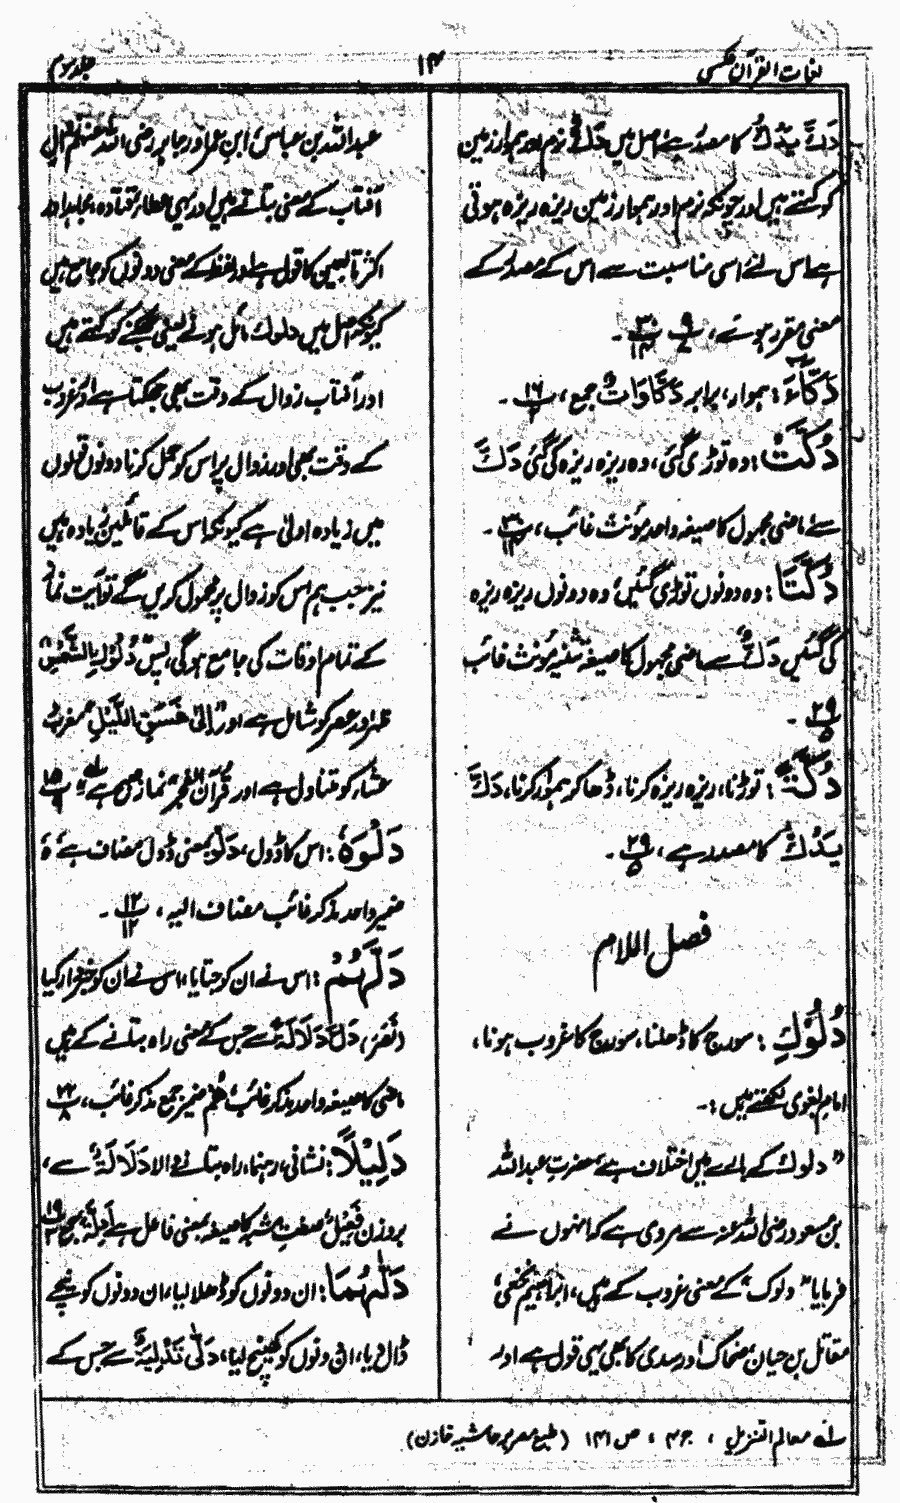 لغات القرآن
۱۴
جلد سوم
دَكَّ يَدُكُّ کا مصدر ہے، اصل میں دَكٌّ نرم اور ہموار زمین
کو کہتے ہیں اور چونکہ نرم اور ہموار زمین ریزہ ریزہ ہوتی
ہے اس لئے اسی مناسبت سے اس کے مصدر کے
معنی مقرر ہوئے،
دَكَّاءَ: ہموار، برابر دَكَّاوَاتٌ جمع، ۱۶
دُكَّتْ: وہ توڑی گئی، وہ ریزہ ریزہ کی گئی دَكٌّ
سے ماضی مجہول کا صیغہ واحد مؤنث غائب،
دُكَّتَا: وہ دونوں توڑی گئیں، وہ دونوں ریزہ ریزہ
کی گئیں دَكٌّ سے ماضی مجہول کا صیغہ تثنیہ مؤنث غائب
۲۹ ۵
دَكَّةً: توڑنا، ریزہ ریزہ کرنا، ڈھا کر ہموار کرنا، دَكَّ
يَدُكُّ کا مصدر ہے، ۲۹ ۵
فصل اللام
دُلُوْكِ: سورج کا ڈھلنا، سورج کا غروب ہونا،
امام لغوی لکھتے ہیں:-
"دلوک کے بارے میں اختلاف ہے، حضرت عبد اللہ
بن مسعود رضی اللہ عنہ سے مروی ہے کہ انہوں نے
فرمایا "دلوک" کے معنی غروب کے ہیں، ابراہیم نخعی،
مقاتل بن حیان، ضحاک اور سدی کا بھی یہی قول ہے اور
عبد اللہ بن عباس، ابن عمر اور جابر رضی اللہ عنہم زوالِ
آفتاب کے معنی بتاتے ہیں اور یہی عطار، قتادہ، مجاہد اور
اکثر تابعین کا قول ہے اور لفظ کے معنی دونوں کو جامع ہیں
کیونکہ اصل میں دلوک مائل ہونے یعنی جھکنے کو کہتے ہیں
اور آفتاب زوال کے وقت بھی جھکتا ہے اور غروب
کے وقت بھی اور زوال پر اس کو حمل کرنا دونوں قولوں
میں زیادہ اولیٰ ہے کیونکہ اس کے قائلین زیادہ ہیں
نیز جب ہم اس کو زوال پر محمول کریں گے تو آیت نماز
کے تمام اوقات کی جامع ہوگی، پس دُلُوْكِ الشَّمْسِ
ظہر اور عصر کو شامل ہے اور اِلٰی غَسَقِ اللَّيْلِ مغرب
عشاء کو متناول ہے اور قُرْآنَ الْفَجْرِ نماز صبح ہے
دَلْوَهٗ: اس کا ڈول، دَلْو بمعنی ڈول مضاف ہے، هٗ
ضمیر واحد مذکر غائب مضاف الیہ، ۱۲ ۱۲
دَلَّهُمْ: اس نے ان کو جتایا، اس نے ان کو خبردار کیا
(نَصَرَ) دَلَّ دَلَالَةً سے جس کے معنی راہ بتانے کے ہیں
ماضی کا صیغہ واحد مذکر غائب، هُمْ ضمیر جمع مذکر غائب، ۲۲ ۸
دَلِيْلًا: نشانی، رہنما، راہ بتانے والا دَلَالَةٌ سے،
بروزن فَعِيْلٌ صفت مشبہ کا صیغہ بمعنی فاعل ہے اَدِلَّةٌ جمع ۱۹
دَلّٰهُمَا: ان دونوں کو ڈھلا لیا، ان دونوں کو نیچے
ڈال دیا، ان دونوں کو کھینچ لیا، دَلّٰی تَدْلِيَةٌ سے جس کے
لہ معالم التنزیل ، ج ۴، ص ۱۴۱ (طبع مصر بر حاشیہ خازن)